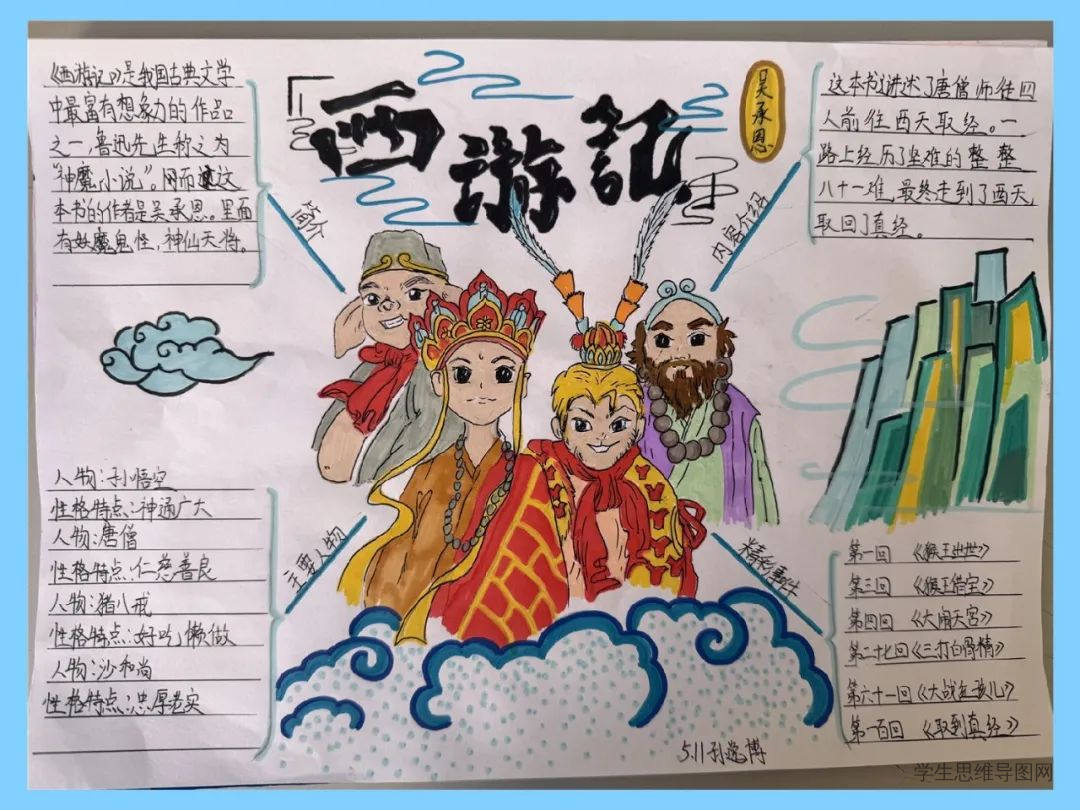 《西游记》是我国古典文学
中最富有想象力的作品
之一,鲁迅先生称之为
"神魔小说"。网而这
本书的作者是吴承恩。里面
有妖魔鬼怪,神仙天将。
简介
西游記
吴承恩
这本书讲述了唐僧师徒四
人前往西天取经。一
路上经历了坚难的整整
八十一难,最终走到了西天
取回了真经。
内容介绍
人物:孙悟空
性格特点:神通广大
人物:唐僧
性格特点:仁慈善良
人物:猪八戒
性格特点:好吃懒做
人物:沙和尚
性格特点:忠厚老实
主要人物
精彩事件
第一回 《猴王出世》
第三回 《猴王借宝》
第四回 《大闹天宫》
第二十七回《三打白骨精》
第六十一回《大战红孩儿》
第一百回 《取到真经》
5.11 孙逸博
学生思维导图网